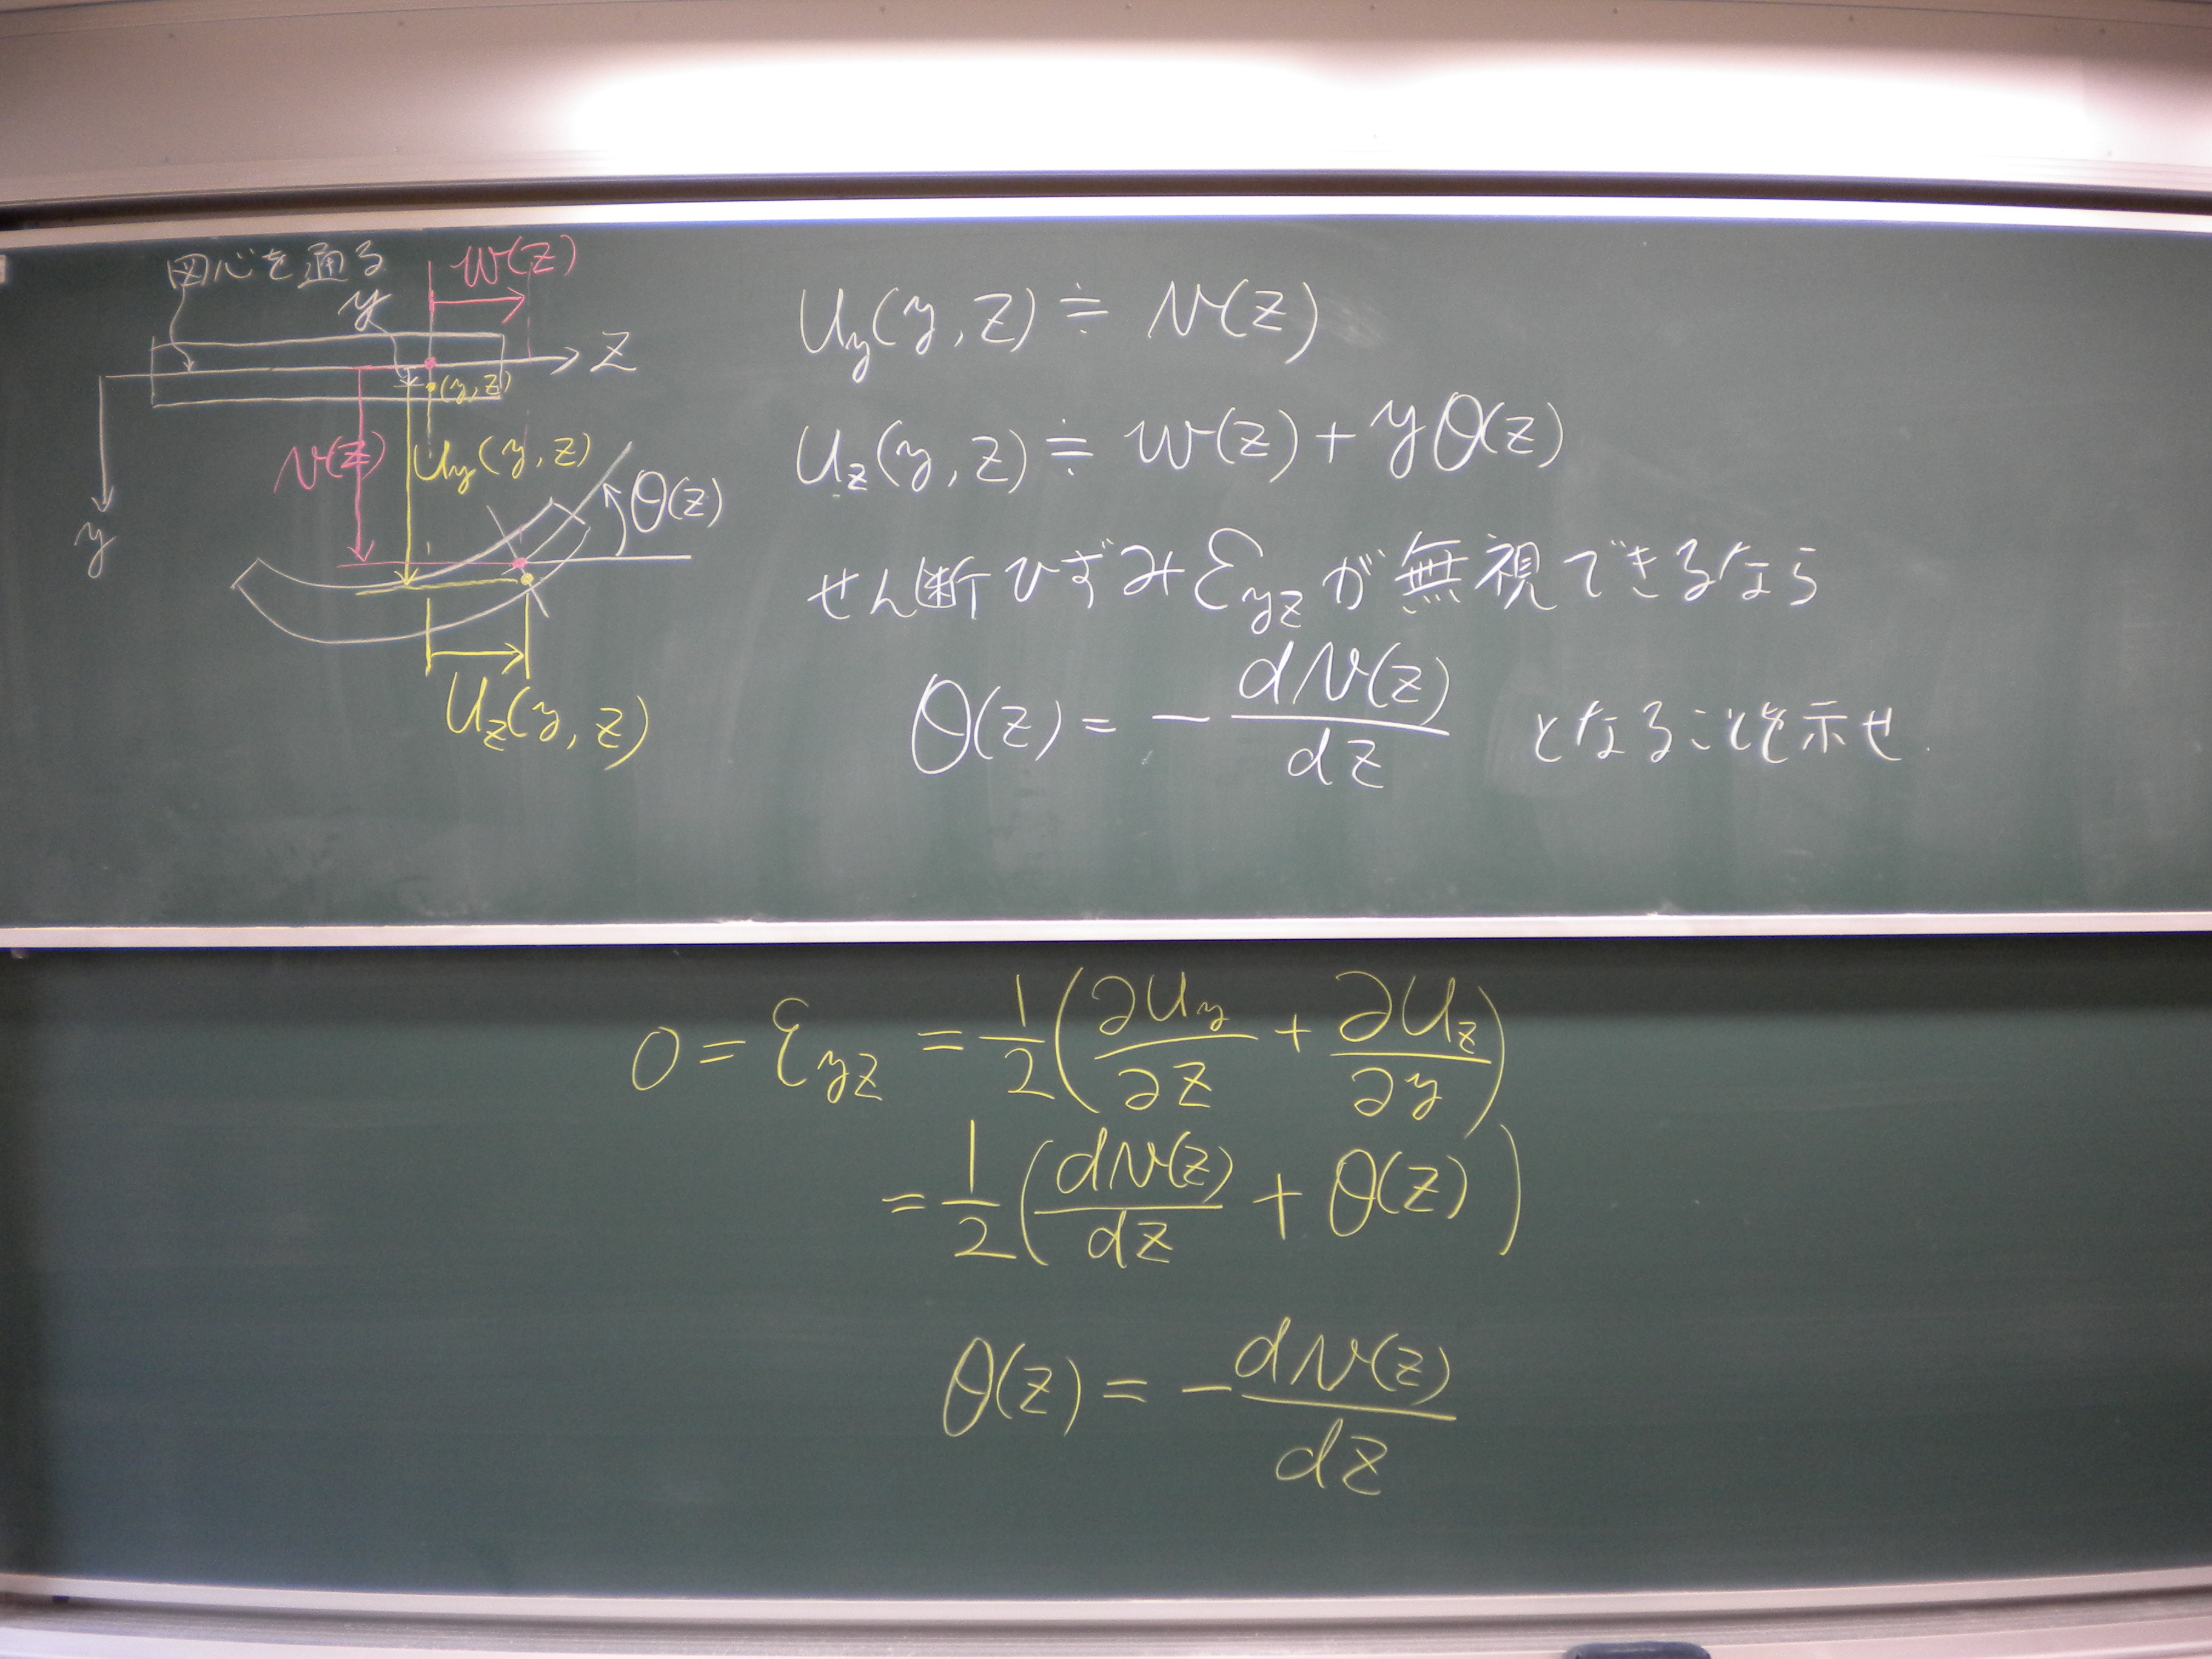 図心を通る
w(z)
y
z
(y, z)
v(z)
u_y(y, z)
y
θ(z)
u_z(y, z)
u_y(y, z) ≒ v(z)
u_z(y, z) ≒ w(z) + yθ(z)
せん断ひずみε_yzが無視できるなら
θ(z) = - dv(z)/dz となることを示せ.
0 = ε_yz = 1/2 (∂u_y/∂z + ∂u_z/∂y)
= 1/2 (dv(z)/dz + θ(z))
θ(z) = - dv(z)/dz